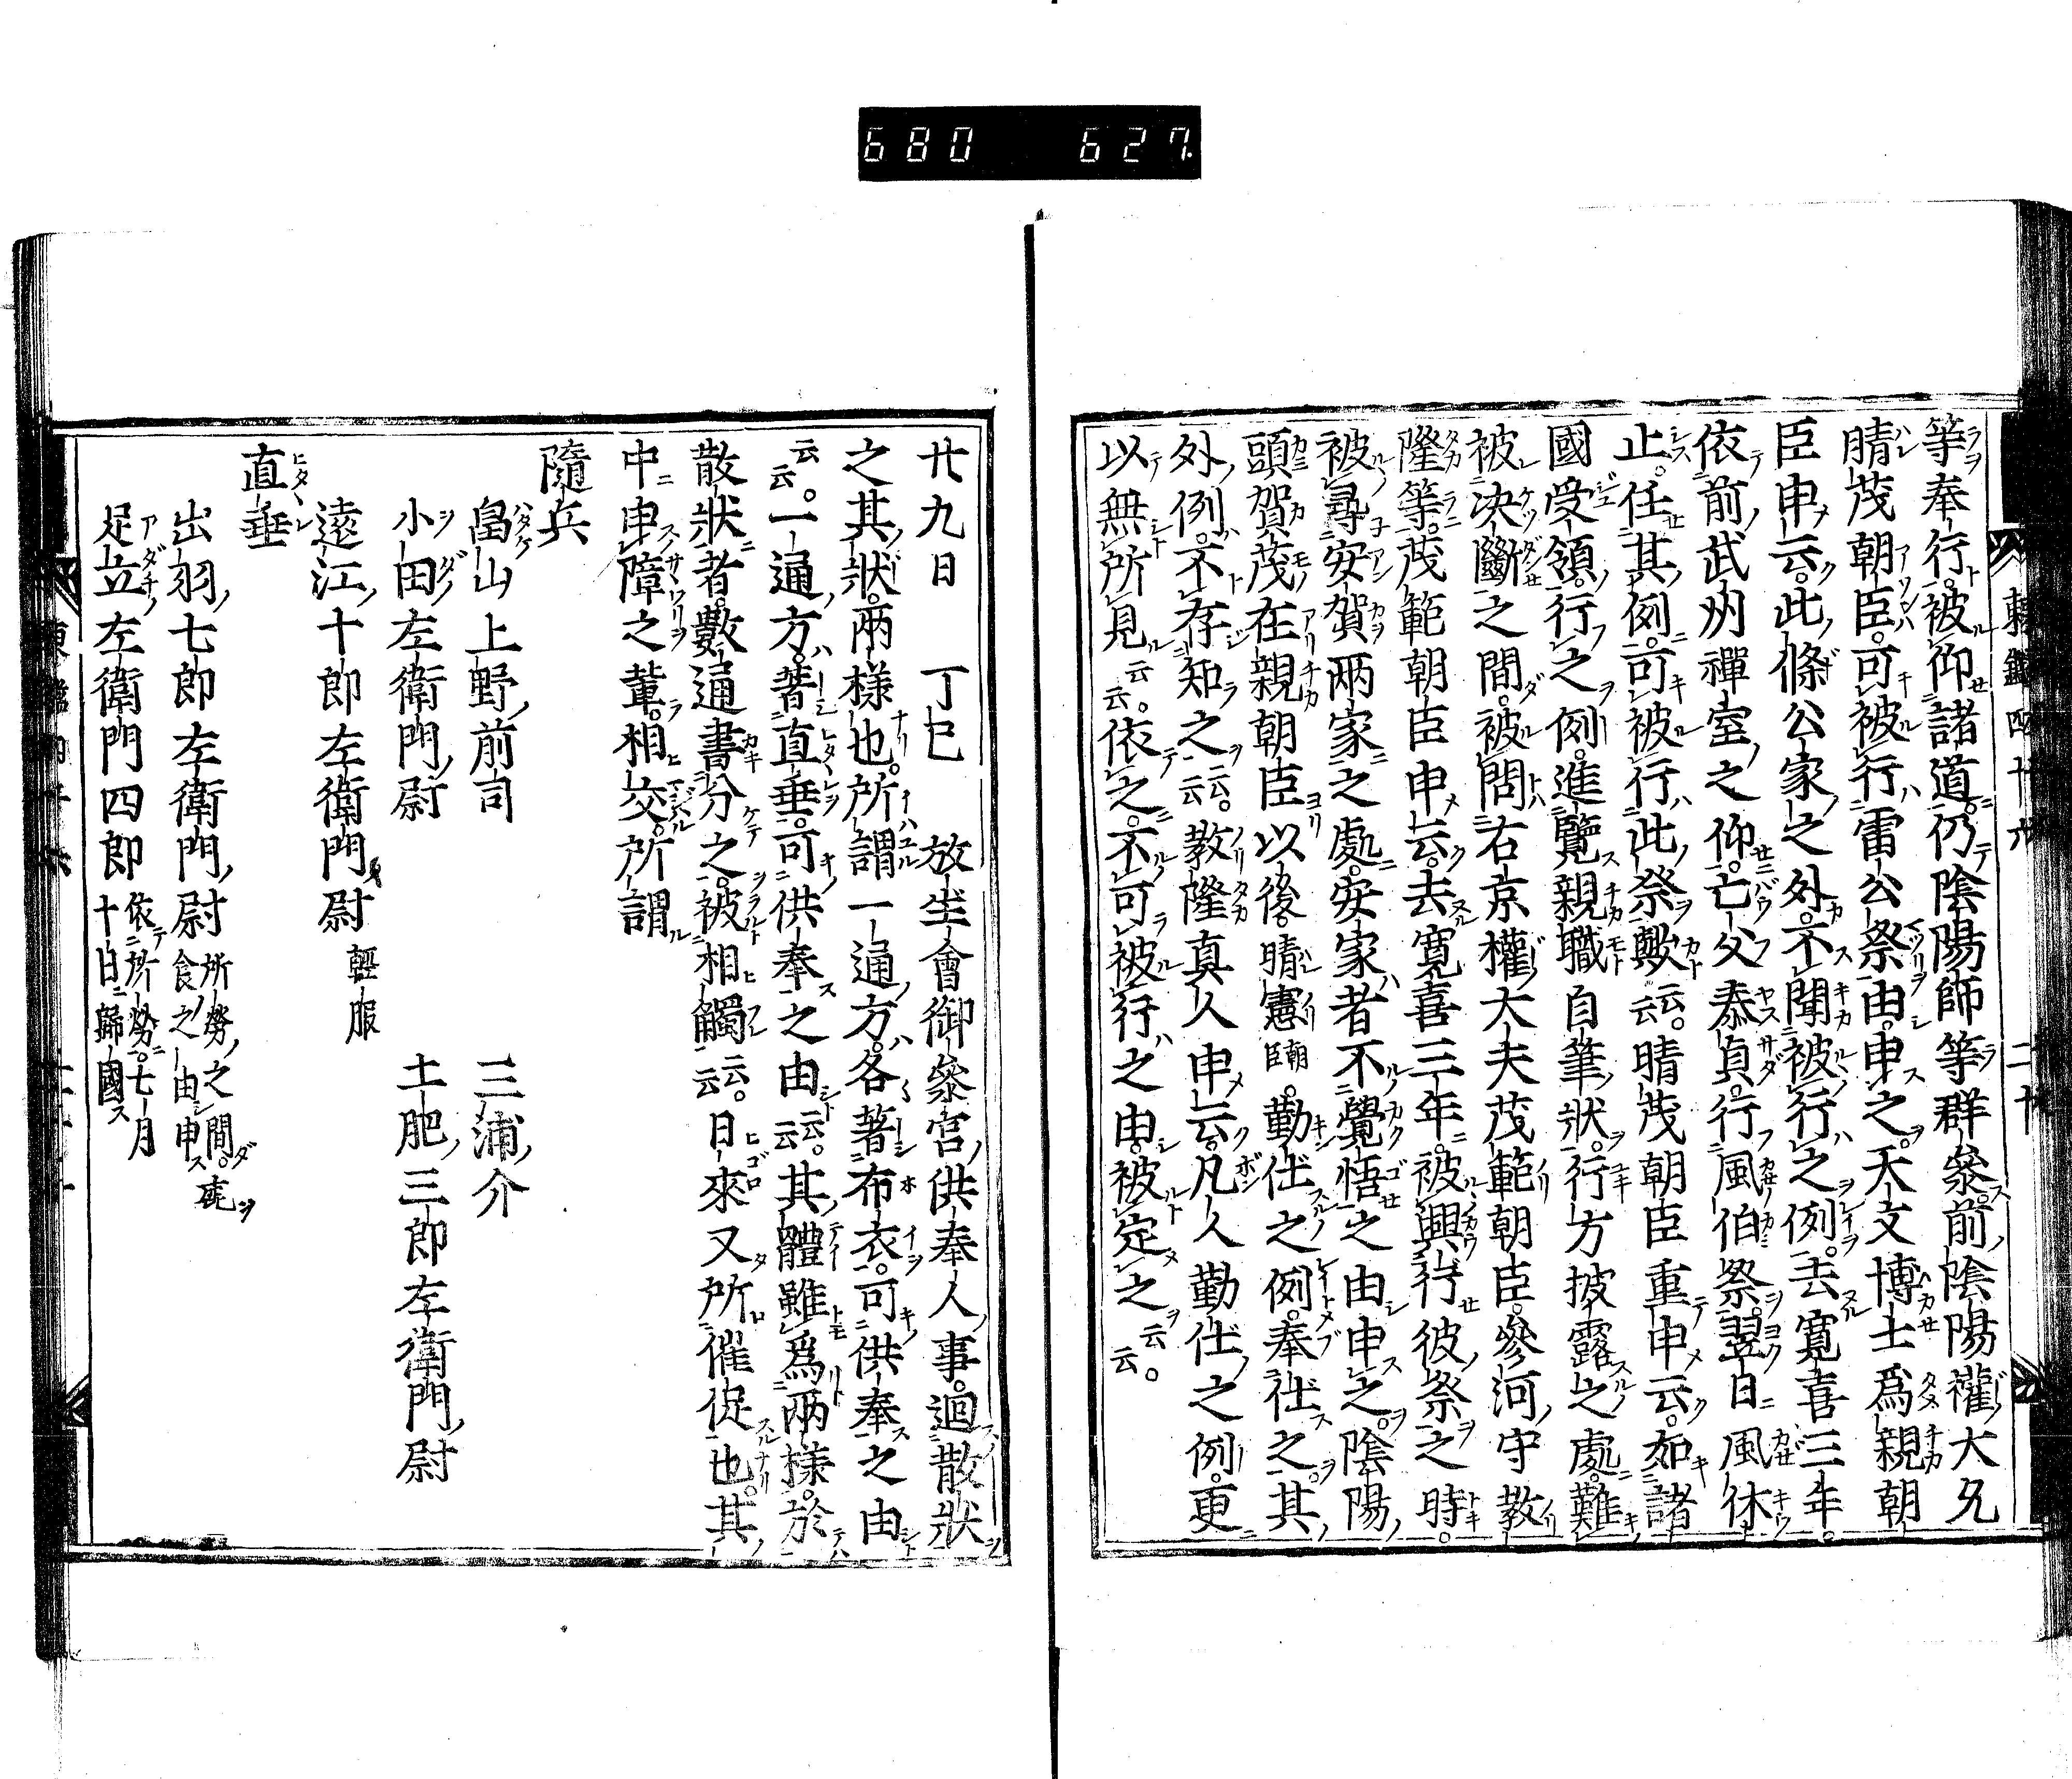 680 627.
東鑑四十六 二十
等奉行。被仰諸道。仍陰陽師等群參。前陰陽權大允
晴茂朝臣。可被行雷公祭由。申之。天文博士爲親朝
臣申云。此條公家之外。不聞被行之例。去寛喜三年。
依前武州禪室之仰。亡父泰貞。行風伯祭。翌日風休
止。任其例。可被行此祭歟云云。晴茂朝臣重申云。如諸
國受領。行之例。進覽親職自筆狀。行方披露之處。難
被決斷之間。被問右京權大夫茂範朝臣。參河守教
隆等。茂範朝臣申云。去寛喜三年。被興行彼祭之時。
被尋安賀兩家之處。安家者不覺悟之由申之。陰陽
頭賀茂在親朝臣以後。晴憲朝臣。勤仕之例。奉仕之。其
外例。不存知之云云。教隆真人申云。凡人勤仕之例。更
以無所見云云。依之。不可被行之由。被定之云云。
廿九日 丁巳 放生會御參宮供奉人事。廻散狀
之其狀。兩樣也。所謂一通方。各著布衣。可供奉之由
云云。一通方。著直垂。可供奉之由云云。其體雖爲兩樣。於
散狀者。數通書分之。被相觸云云。日來又所催促也。其
中申障之輩。相交。所謂
隨兵
畠山上野前司 三浦介
小田左衛門尉 土肥三郎左衛門尉
遠江十郎左衛門尉 輕服
直垂
出羽七郎左衛門尉 所勞之間。鹿食之由申
足立左衛門四郎 依所勞。七月十日歸國